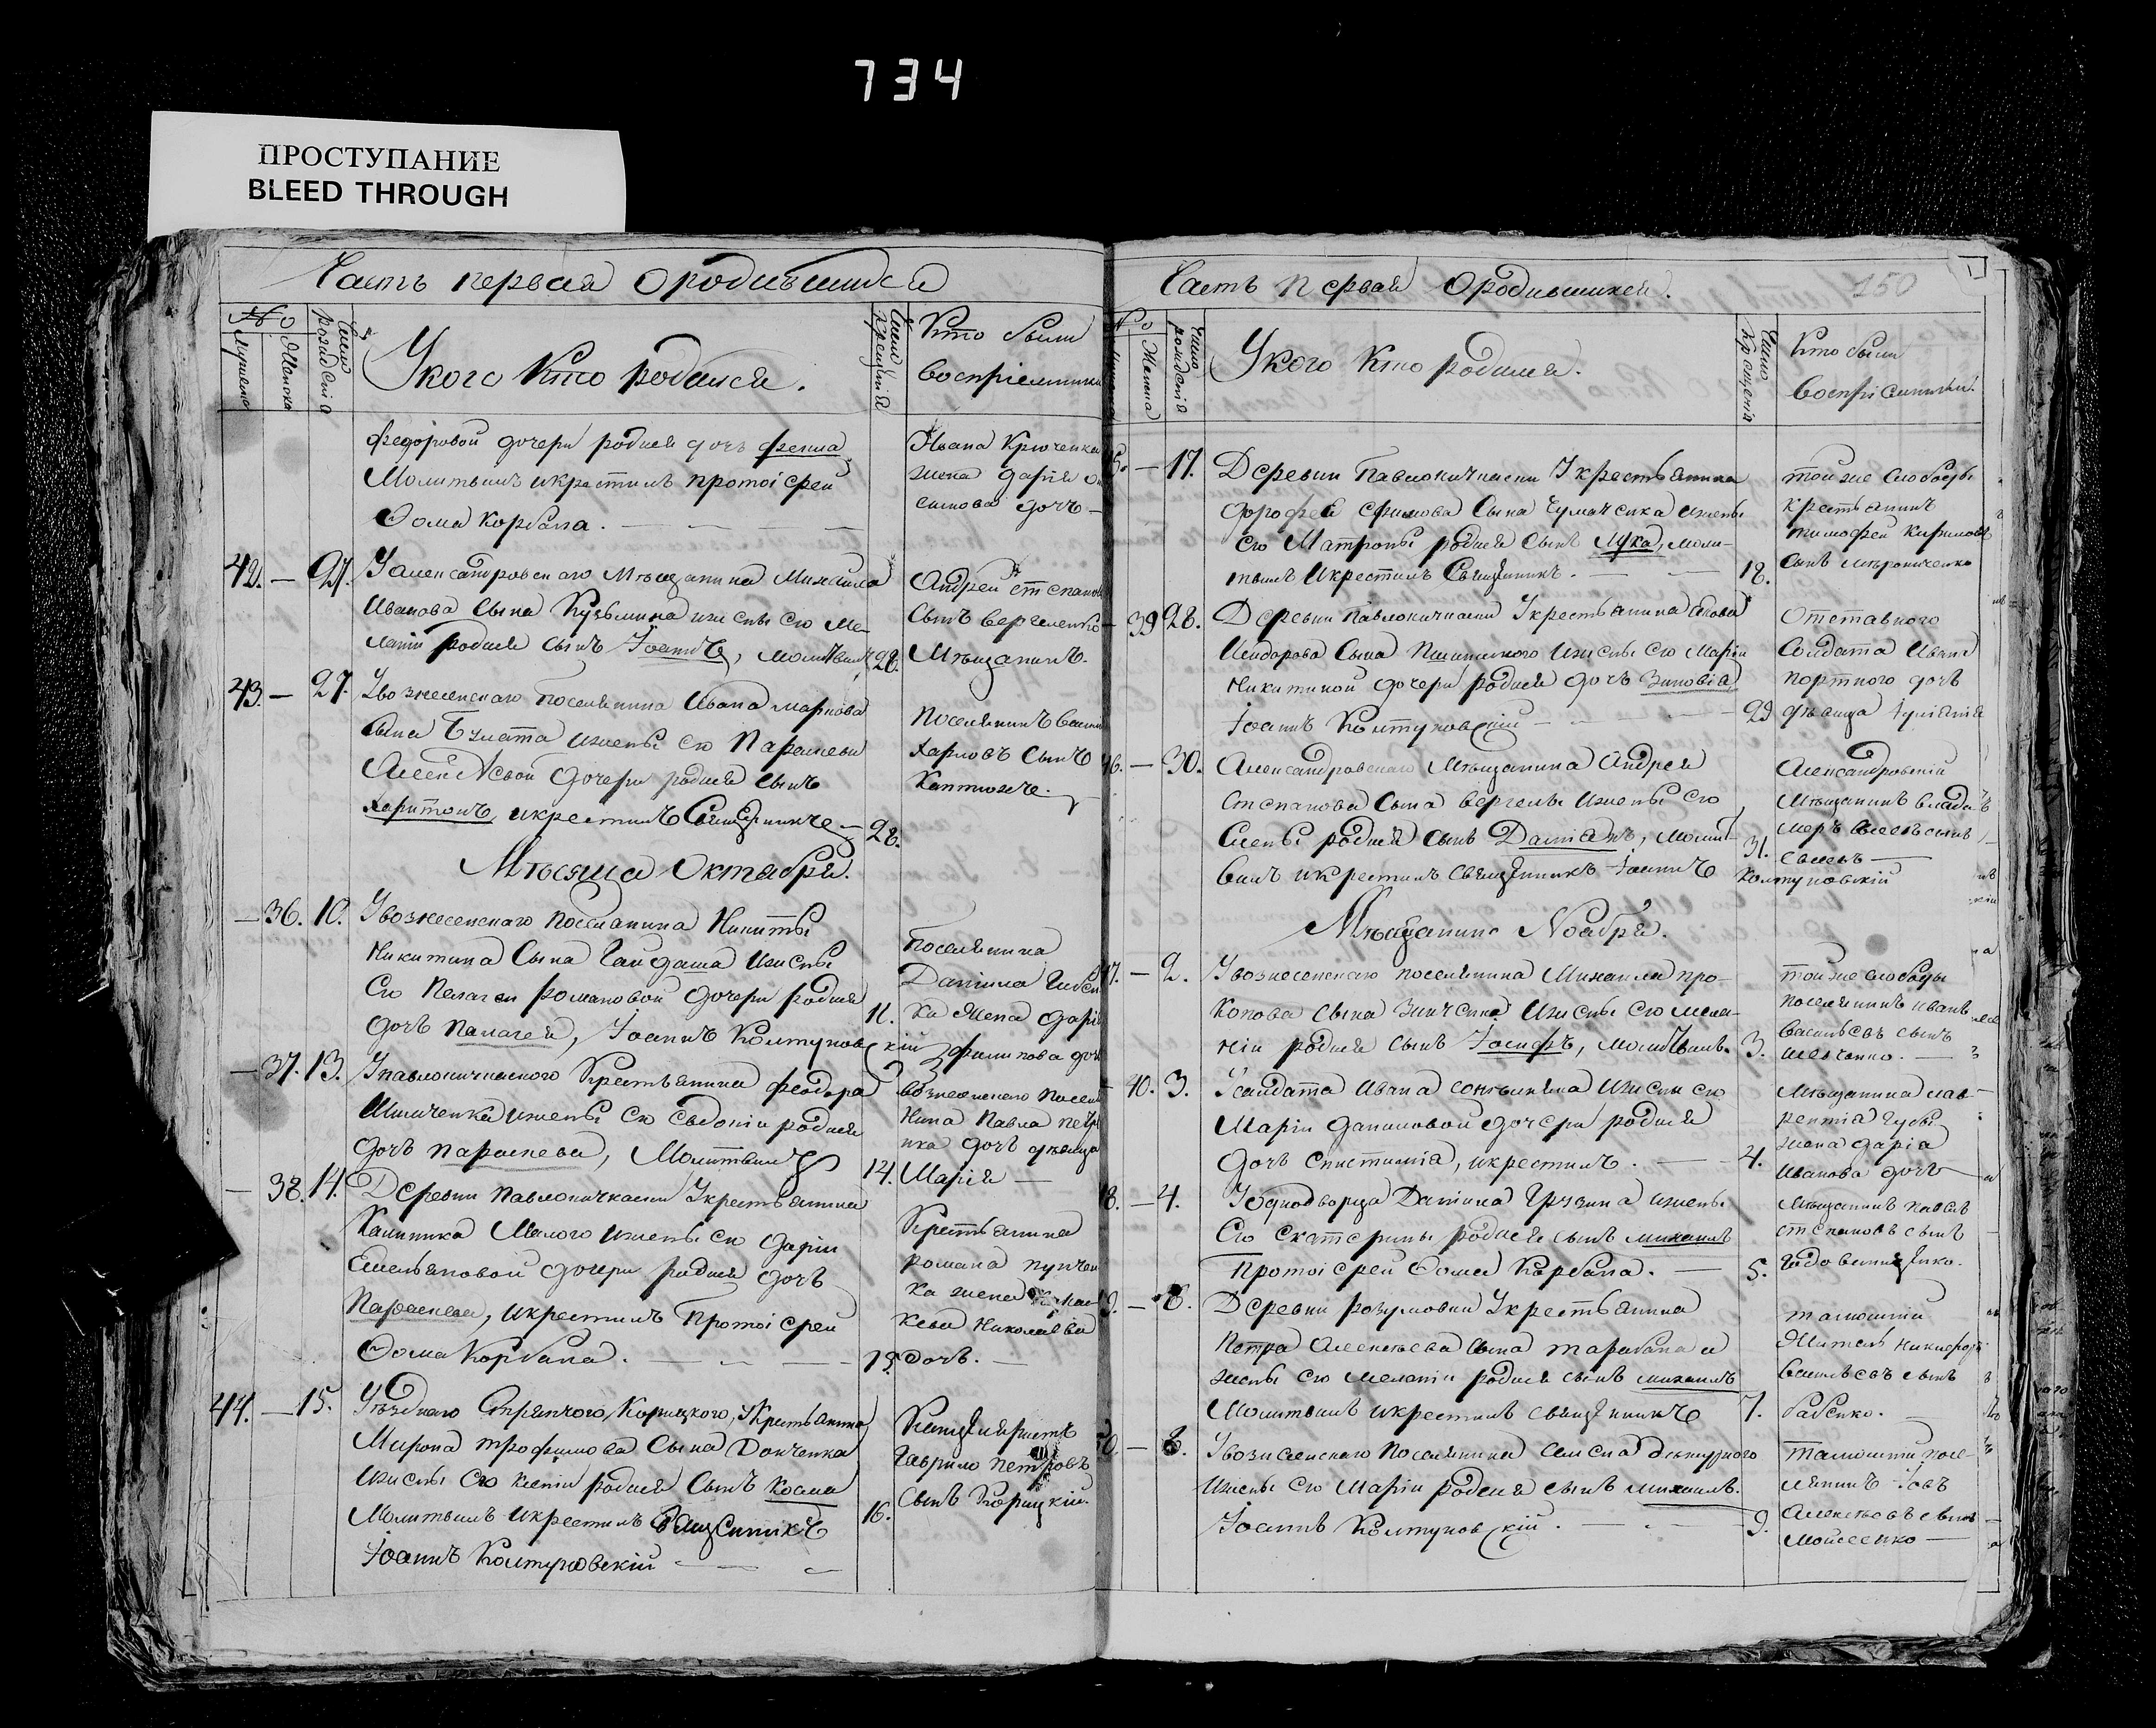 734
ПРОСТУПАНИЕ
BLEED THROUGH
Часть первая О родившихся
№
Мужеска
Женска
Число рождения
У кого кто родился.
Число крещения
Кто были
восприемники
Федоровой дочери родися дочь Фекла,
Молитвилъ и крестилъ протоіерей
Фома Корбана.
Ивана Крюченка
жена Дарія
симова дочь
42. — 27. У Александровскаго Мѣщанина Михаила
Иванова Сына Кузьмина и жены его Ме-
ланіи родися сынъ Іоаннъ, молитвилъ 28.
Андрей Степановъ
Сынъ Вергеленко
Мѣщанинъ.
43. — 27. У вознесенскаго поселянина Ивана маркова
Сына и жены его Параскевы
Алексѣевой дочери родися сынъ
Харитонъ, и крестилъ Священникъ 28.
Поселянинъ
Карповъ Сынъ
Мѣсяца Октября.
— 36. 10. У вознесенскаго поселянина Никиты
Никитина Сына Гайдаша и жены
его Пелагеи романовой дочери родися
дочь Палагея, Іоаннъ Колтуновскій 11.
Поселянина
Даніила
ка Жена Дарія
Филипова дочь
— 37. 13. У павлокичкаского Крестьянина Феодора
и жены его Евдокіи родися
дочь Параскева, Молитвилъ 14.
Вознесенского посел
нина Павла Петри
нка дочь дѣвица
Марія
— 38. 14. Деревни Павлокичкаски У крестьянина
Калиника Малого и жены его Даріи
Емельяновой дочери родися дочь
Параскева, и крестилъ Протоіерей
Фома Корбана. 15.
Крестьянина
романа
ка жена
Николаева
дочь.
44. — 15. Уѣзднаго Стряпчого Корицкого, У Крестьянина
Мирона трофимова Сына Донченка
и жены его родися Сынъ Косма
Молитвилъ и крестилъ Священникъ 16.
Іоаннъ Колтуновскій
Канцеляристъ
Гаврило Петровъ
Сынъ Корицкій
Часть Первая О родившихся.
150
№
Женска
Число рождения
У кого кто родился.
Число крещения
Кто были
восприемники.
— 17. Деревни Павлокичкаски У крестьянина
дорофея ефимова Сына Чумаченка и жены
его Матроны родися Сынъ Лука, моли-
твилъ и крестилъ Священникъ. 18.
той же слободы
крестьянинъ
тимофей Кириловъ
Сынъ мирониченко
— 39 28. Деревни Павлокичкаски У крестьянина
Исидорова Сына и жены его Маріи
Никитиной дочери родися дочь Зиновія,
Іоаннъ Колтуновскій 29
Отставного
Солдата Ивана
портного дочь
дѣвица Іуліанія
46. — 30. Александровскаго Мѣщанина Андрея
Степанова Сына Вергелы и жены его
Елены родися сынъ Даміанъ, молит-
вилъ и крестилъ Священникъ Іоаннъ Колтуновскій 31.
Александровскій
Мѣщанинъ Влади
меръ
Мѣсяца Ноября.
47. — 2. У вознесенскаго поселянина Михаила про-
копова сына Зинченка и жены его мела-
ніи родися сынъ Іосифъ, молитвилъ. 3.
той же слободы
поселянинъ иванъ
васильевъ сынъ
шевченко.
— 40. 3. У солдата Ивана и жены его
Маріи даниловой дочери родися
дочь Епистимія, и крестилъ. 4.
Мѣщанина лав-
рентія Губы
жена Дарія
Иванова дочь
48. — 4. У однодворца Даніила Грузина и жены
Его Екатерины родися сынъ михаилъ
Протоіерей Фома Корбана. 5.
Мѣщанинъ Павелъ
степановъ сынъ
49. — 6. Деревни розумовки У крестьянина
Петра Алексѣева сына тарабана и
жены его меланіи родися сынъ михаилъ
Молитвилъ и крестилъ священникъ 7.
тамошній
Житель Никифоръ
Васильевъ сынъ
бабенко.
50. — 8. У вознесенскаго Поселянина
и жены его Маріи родися сынъ михаилъ.
Іоаннъ Колтуновскій. 9.
Тамошній посе-
лянинъ Іовъ
Алексѣевъ сынъ
Мойсеенко